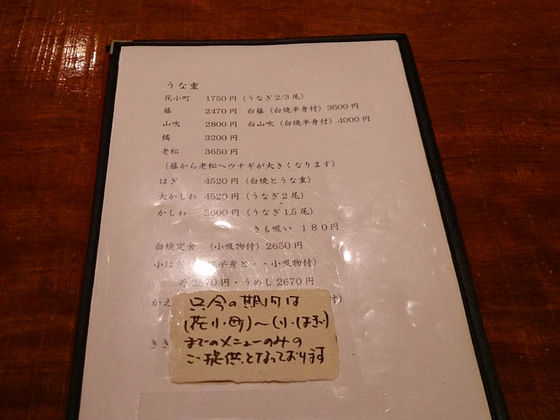 うな重
花小町 1750円 (うなぎ2/3尾)
藤 2470円 白藤 (白焼半身付) 3600円
山吹 2800円 白山吹 (白焼半身付) 4000円
橘 3200円
老松 3650円
(藤から老松へウナギが大きくなります)
はぎ 4520円 (白焼とうな重)
大かしわ 4520円 (うなぎ2尾)
かしわ 3600円 (うなぎ1.5尾)
きも吸い 180円
白焼定食 (小吸物付) 2650円
小は 半身と ・小吸物付)
2570円・うめし 2670円
かえ 付)
只今の期間は
(花小町)〜(小はぎ)
までのメニューのみの
ご提供となっております
きき